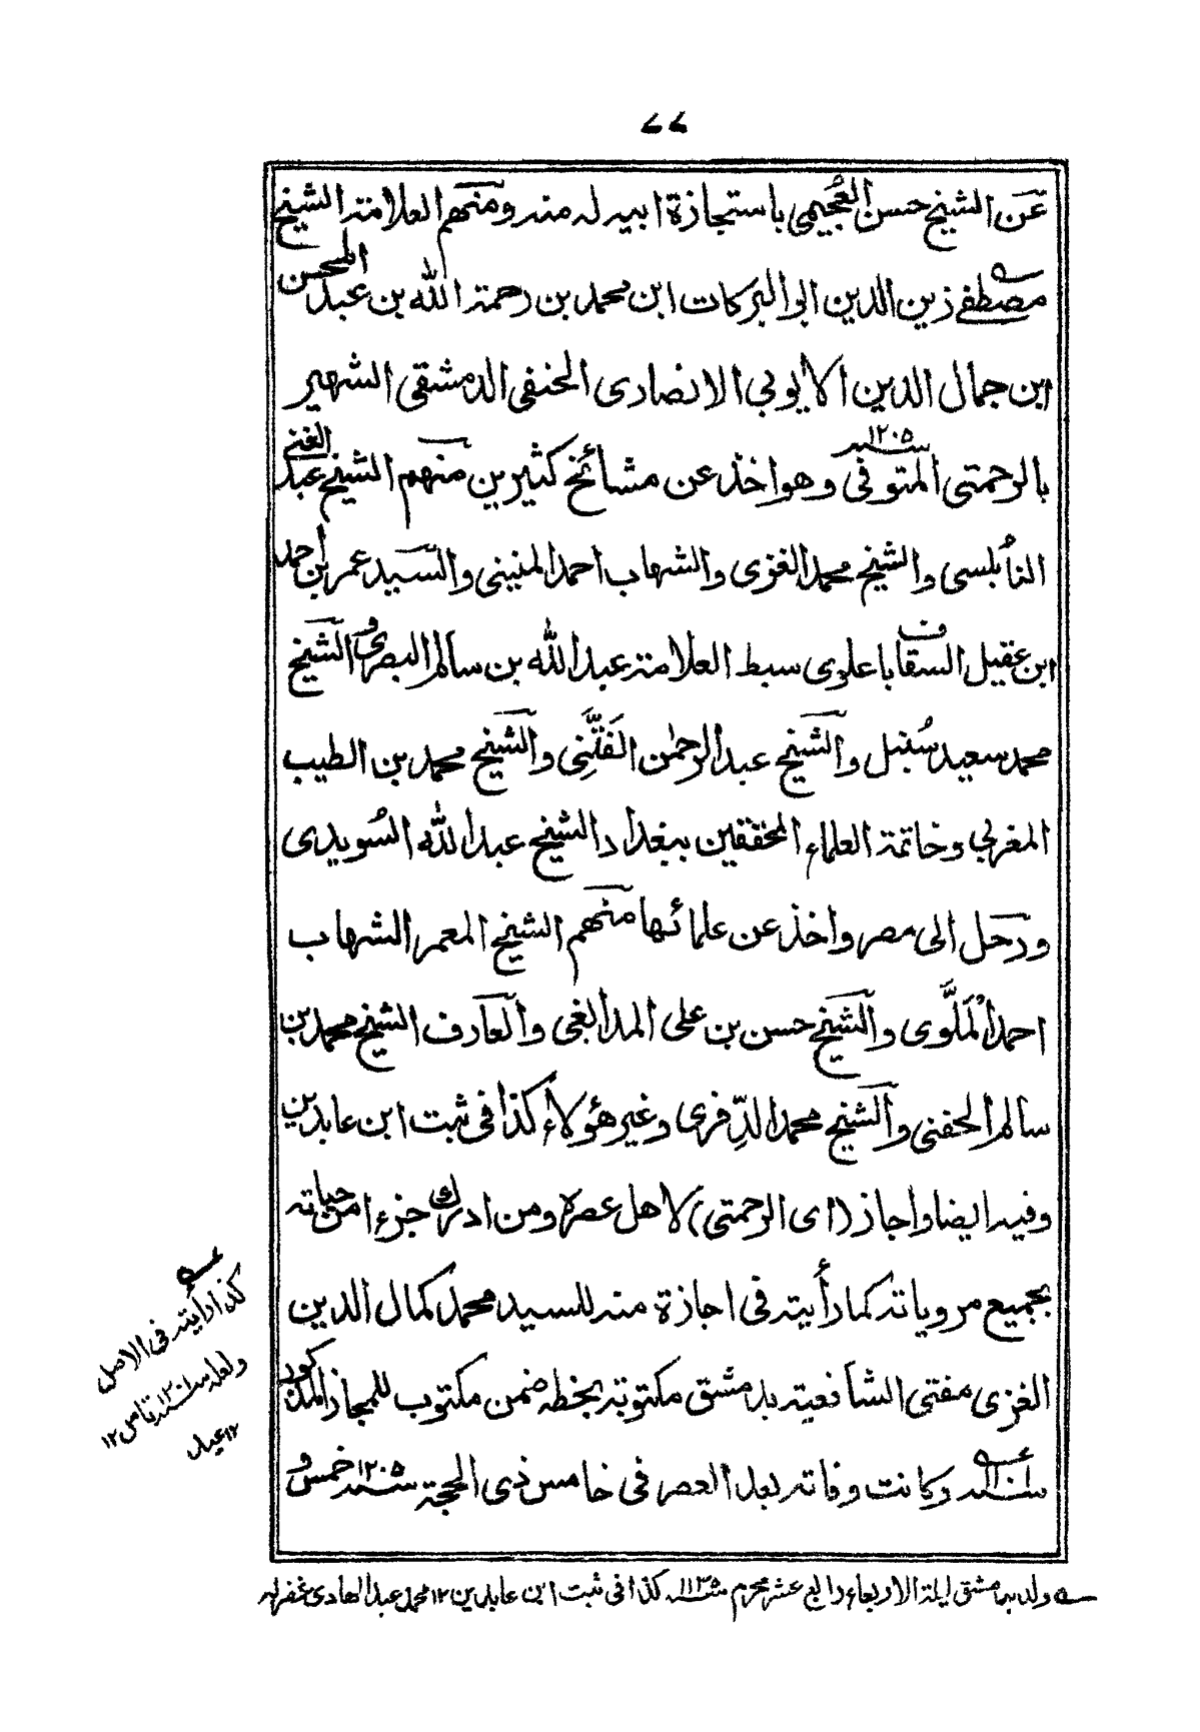 ٤٤
عن الشيخ حسن العُجيمي باستجازة ابيه له منه ومنهم العلامة الشيخ
مصطفى زين الدين ابي البركات ابن محمد بن رحمة الله بن عبد المحسن
ابن جمال الدين الايوبي الانصارى الحنفى الدمشقى الشهير
بالرحمتى المتوفى سنه ١٢٠٥ وهو اخذ عن مشائخ كثيرين منهم الشيخ عبد الغنى
النابلسى والشيخ محمد الغزى والشهاب احمد المنينى والسيد عمر بن احمد
ابن عقيل السقاف باعلوى سبط العلامة عبد الله بن سالم البصرى والشيخ
محمد سعيد سُنبل والشيخ عبد الرحمٰن الفَتَّنِى والشيخ محمد بن الطيب
المغربى وخاتمة العلماء المحققين ببغداد الشيخ عبد الله السُويدى
ورحل الى مصر واخذ عن علمائها منهم الشيخ المعمر الشهاب
احمد المَلَّوى والشيخ حسن بن على المدابغى والعارف الشيخ محمد بن
سالم الحفنى والشيخ محمد الدِّفرى وغير هؤلاء كذا فى ثبت ابن عابدين
وفيه ايضا واجاز (اى الرحمتى) لاهل عصره ومن ادرك جزءا من حياته
بجميع مروياته كما رأيته فى اجازة منه للسيد محمد كمال الدين
الغزى مفتى الشافعية بدمشق مكتوبة بخطه ضمن مكتوب للمجاز المذكور
وكانت وفاته بعد العصر فى خامس ذى الحجة سنه ١٢٠٥ خمس و
كذا رأيته فى الاصل
ولعله
١٢ عبد
ولد بدمشق ليلة الاربعاء رابع عشر محرم سنه ١١٣٥ كذا فى ثبت ابن عابدين ١٢ محمد عبد الهادى غفر له